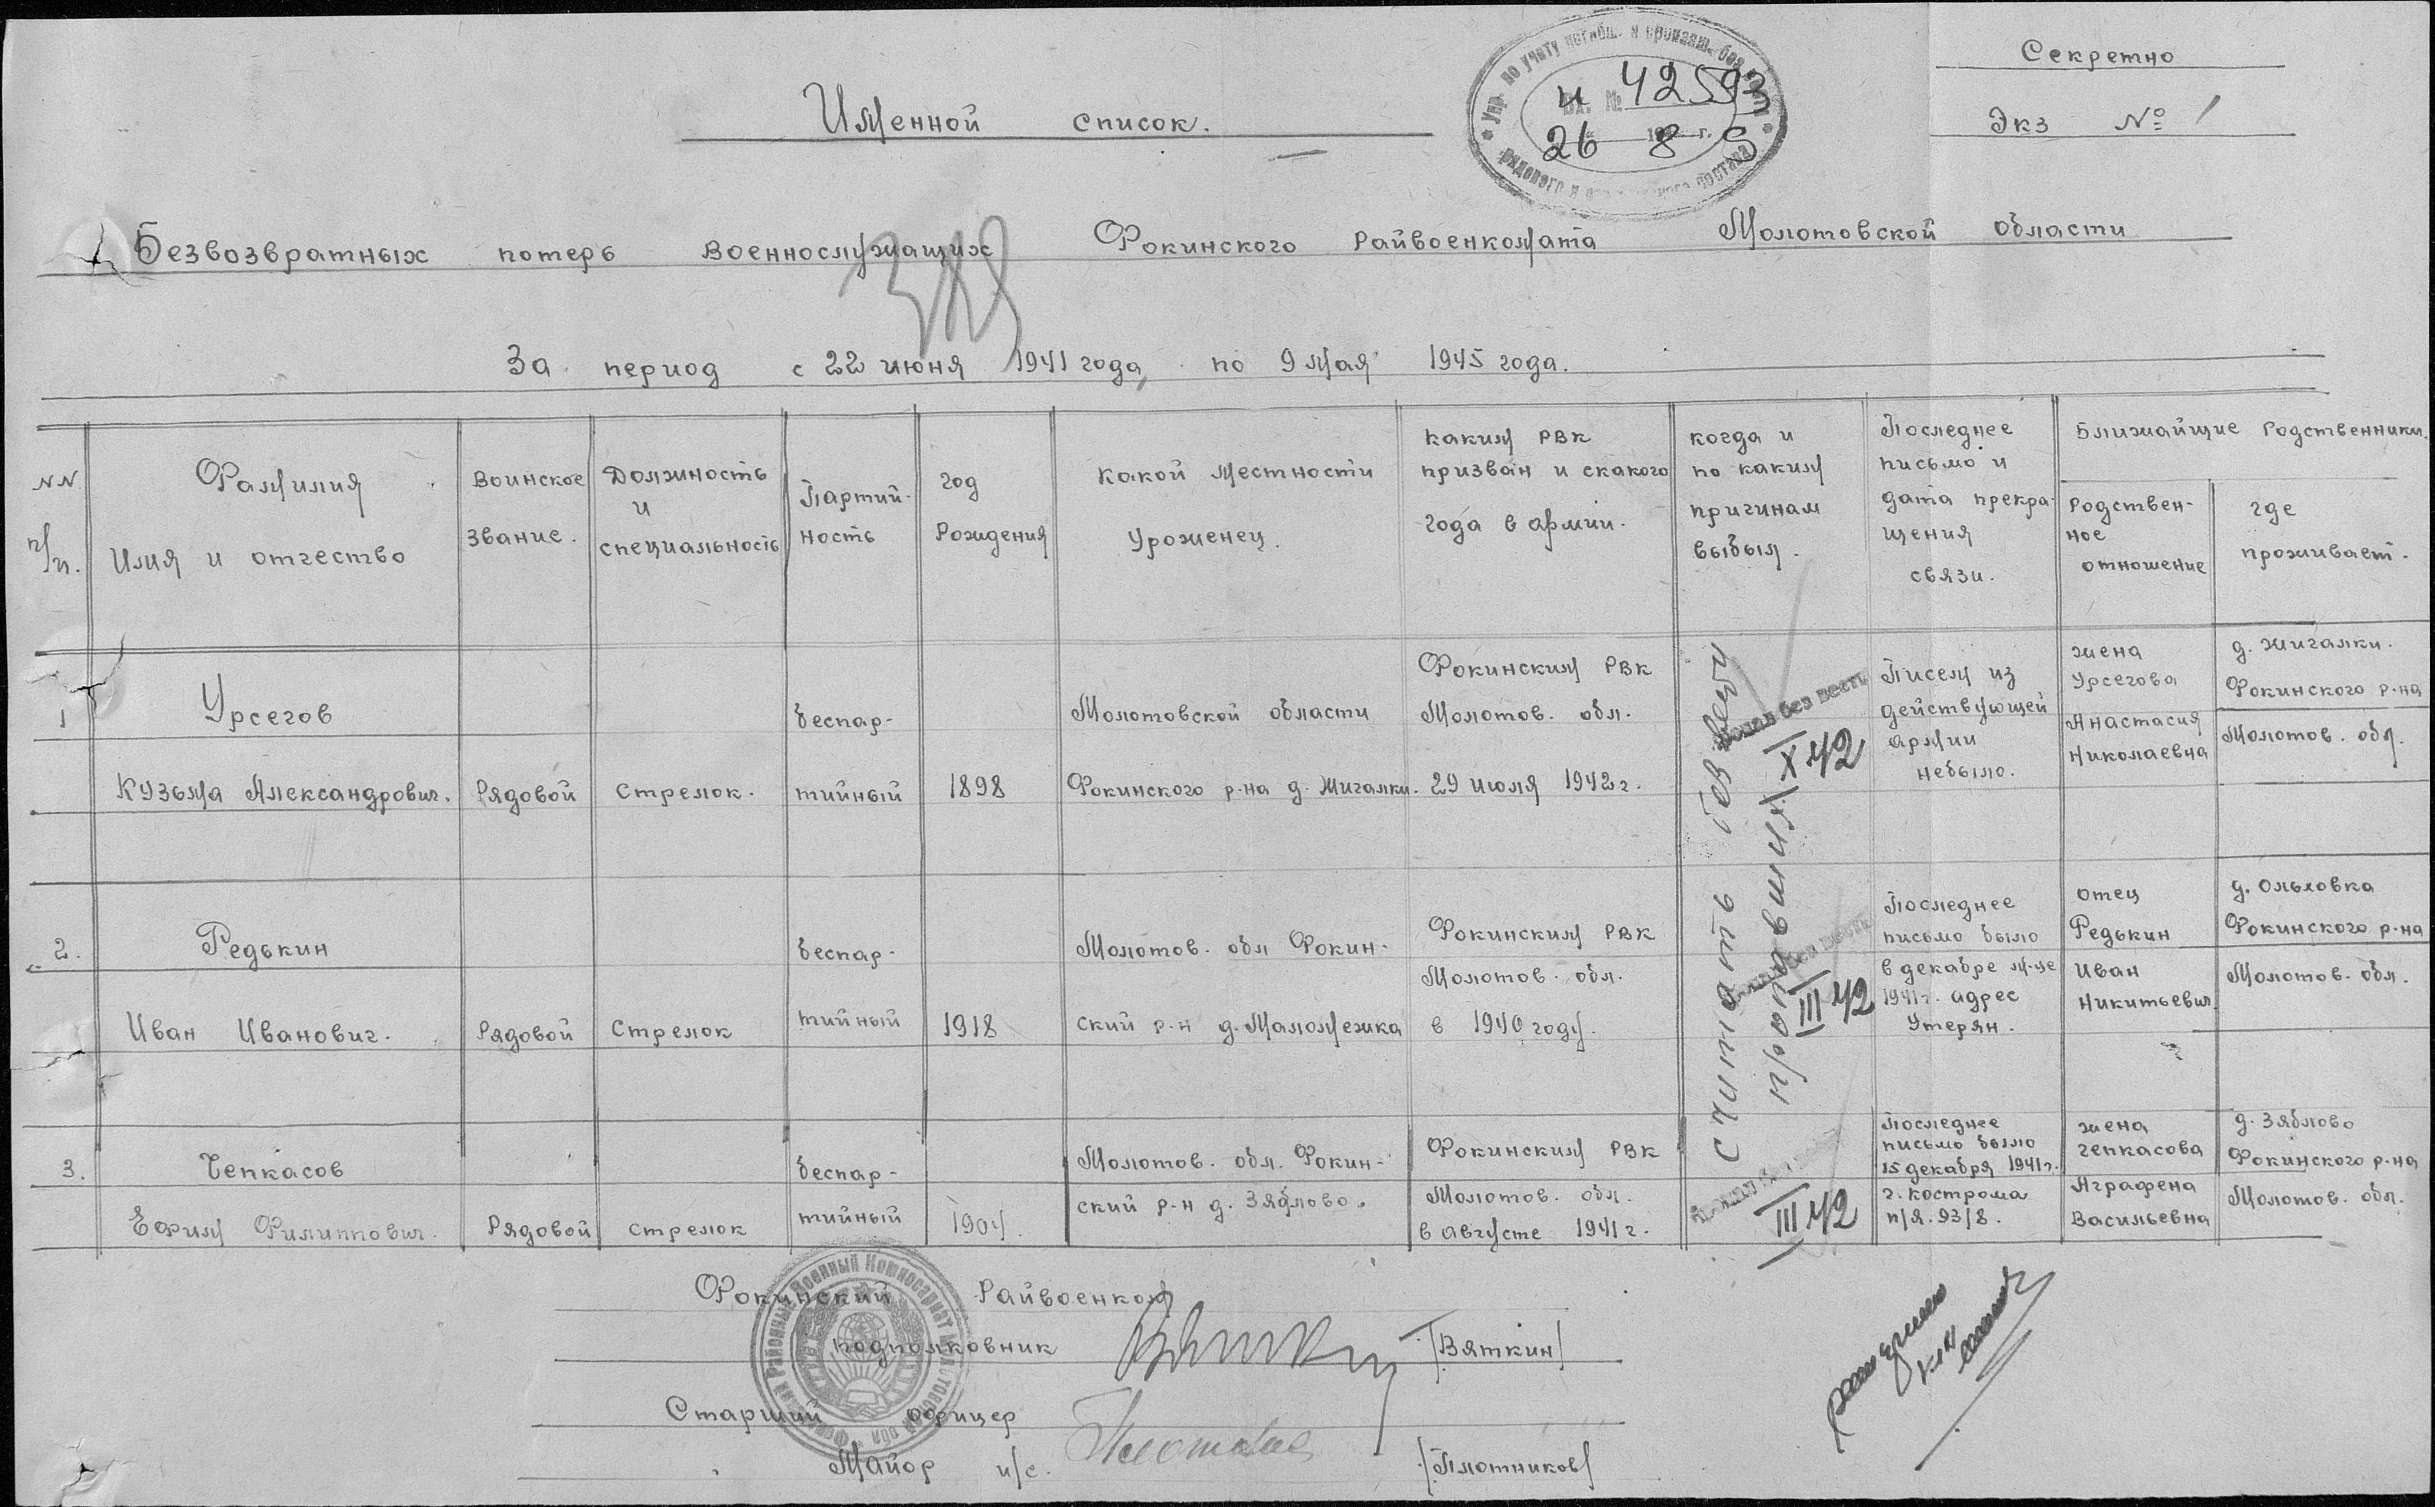 Секретно
Экз № 1
Упр. по учету погибш. и пропавш. без вести
Вх. № 42593
26 8
рядового и состава
Именной список.
Безвозвратных потерь военнослужащих Фокинского Райвоенкомата Молотовской области
За период с 22 июня 1941 года, по 9 мая 1945 года.
NN п/п.
Фамилия
Имя и отчество
Воинское
звание.
Должность
и
специальность
Партий-
ность
год
Рождения
Какой местности
уроженец.
Каким РВК
призван и скакого
года в армии.
когда и
по каким
причинам
выбыл.
Последнее
письмо и
дата прекра-
щения
связи.
Ближайшие Родственники.
Родствен-
ное
отношение
где
проживает.
1
Урсегов
Кузьма Александрович.
Рядовой
Стрелок.
беспар-
тийный
1898
Молотовской области
Фокинского р-на д. Жигалки.
Фокинским РВК
Молотов. обл.
29 июля 1942 г.
пропал без вести
X 42
Писем из
действующей
армии
небыло.
жена
Урсегова
Анастасия
Николаевна
д. Жигалки.
Фокинского р-на
Молотов. обл.
Считать без вести
пропавших
2.
Редькин
Иван Иванович.
Рядовой
Стрелок
беспар-
тийный
1918
Молотов. обл Фокин-
ский р-н д. Маломежка
Фокинским РВК
Молотов. обл.
в 1940 году.
пропал без вести
III 42
Последнее
письмо было
в декабре м-це
1941 г. адрес
Утерян.
отец
Редькин
Иван
Никитьевич
д. Ольховка
Фокинского р-на
Молотов. обл.
3.
Чепкасов
Ефим Филиппович.
Рядовой
стрелок
беспар-
тийный
1904.
Молотов. обл. Фокин-
ский р-н д. Зяблово.
Фокинским РВК
Молотов. обл.
в августе 1941 г.
пропал без вести
III 42
Последнее
письмо было
15 декабря 1941 г.
г. Кострома
п/я. 93/8.
жена
Чепкасова
Аграфена
Васильевна
д. Зяблово
Фокинского р-на
Молотов. обл.
Фокинский Райвоенком
подполковник /Вяткин/
Старший офицер
Майор и/с. /Плотников/
Районный Военный Комиссариат Молотовской обл